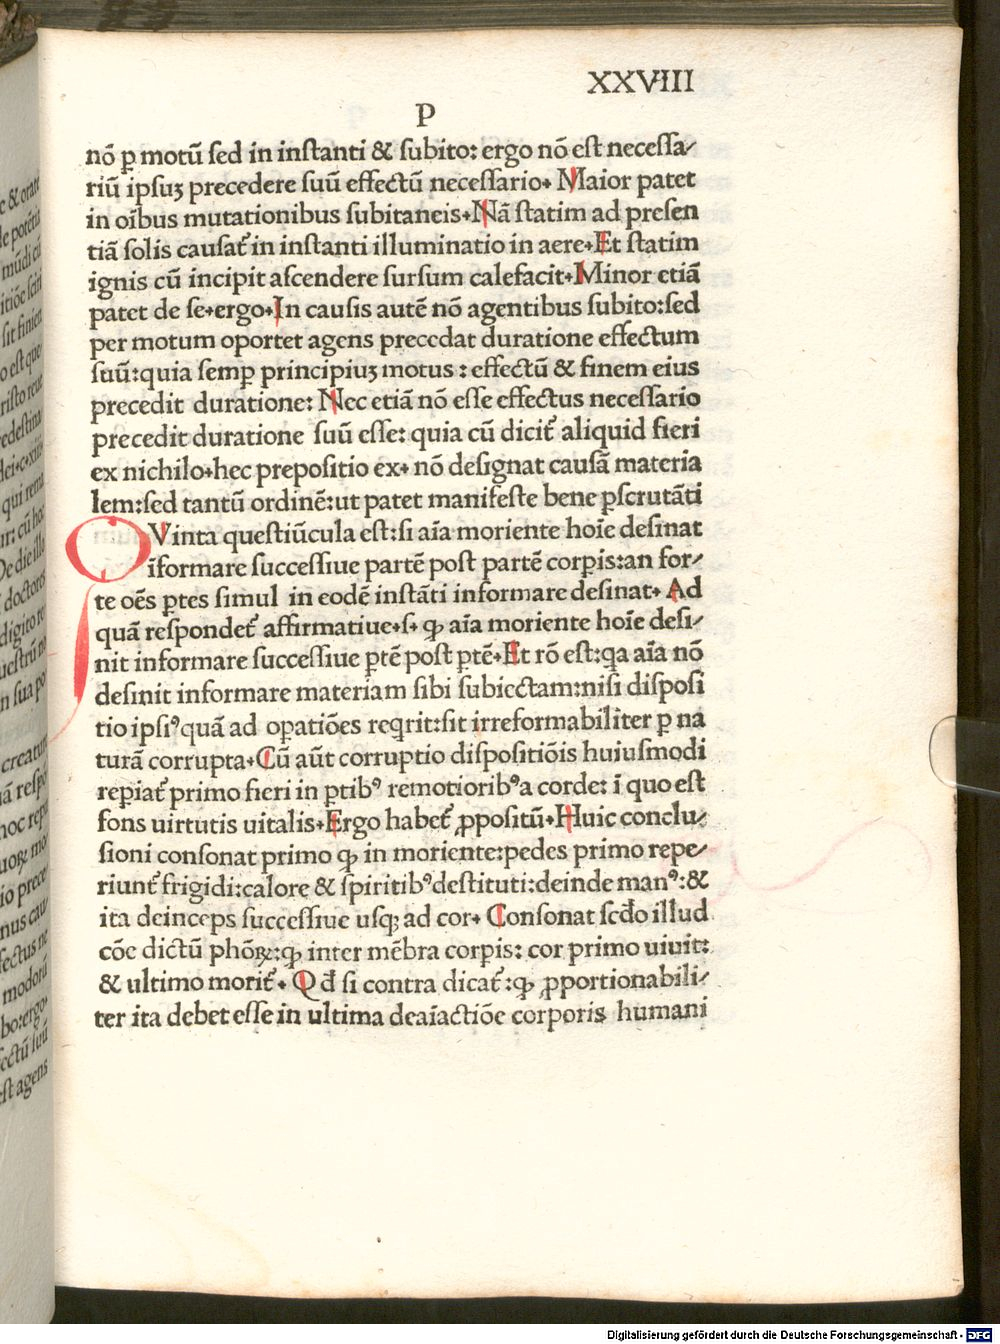 XXVIII
P
nō ꝑ motū ſed in inſtanti & ſubito: ergo nō eſt neceſſa/
riū ipſuꝫ precedere ſuū effectū neceſſario. Maior patet
in oībus mutationibus ſubitaneis. Nā ſtatim ad preſen
tiā ſolis cauſat᷑ in inſtanti illuminatio in aere. Et ſtatim
ignis cū incipit aſcendere ſurſum calefacit. Minor etiā
patet de ſe. ergo. In cauſis autē nō agentibus ſubito: ſed
per motum oportet agens precedat duratione effectum
ſuū: quia ſemꝑ principiuꝫ motus: effectū & finem eius
precedit duratione: Nec etiā nō eſſe effectus neceſſario
precedit duratione ſuū eſſe: quia cū dicit᷑ aliquid fieri
ex nichilo. hec prepoſitio ex. nō deſignat cauſā materia
lem: ſed tantū ordinē: ut patet manifeſte bene ꝑſcrutāti
QVinta queſtiūcula eſt: ſi aīa moriente hoīe deſinat
īformare ſucceſſiue partē poſt partē corꝑis: an for/
te oēs ꝑtes ſimul in eodē inſtāti informare deſinat. Ad
quā reſpondet᷑ affirmatiue. ſ. ꝙ aīa moriente hoīe deſi/
nit informare ſucceſſiue ꝑtē poſt ꝑtē. Et rō eſt: qa aīa nō
deſinit informare materiam ſibi ſubiectam: niſi diſpoſi
tio ipſiꝰ quā ad oꝑatiōes reqrit: ſit irreformabiliter ꝑ na
turā corrupta. Cū aūt corruptio diſpoſitiōis huiuſmodi
repiat᷑ primo fieri in ꝑtibꝰ remotioribꝰ a corde: ī quo eſt
fons uirtutis uitalis. Ergo habet᷑ ꝓpoſitū. Huic conclu/
ſioni conſonat primo ꝙ in moriente: pedes primo repe/
riunt᷑ frigidi: calore & ſpiritibꝰ deſtituti: deinde manꝰ: &
ita deinceps ſucceſſiue uſqꝫ ad cor. Conſonat ſcđo illud
cōe dictū phōꝝ: ꝙ inter mēbra corꝑis: cor primo uiuit:
& ultimo morit᷑. Qđ ſi contra dicat᷑: ꝙ ꝓportionabili/
ter ita debet eſſe in ultima deaīactiōe corporis humani
Digitalisierung gefördert durch die Deutsche Forschungsgemeinschaft - DFG